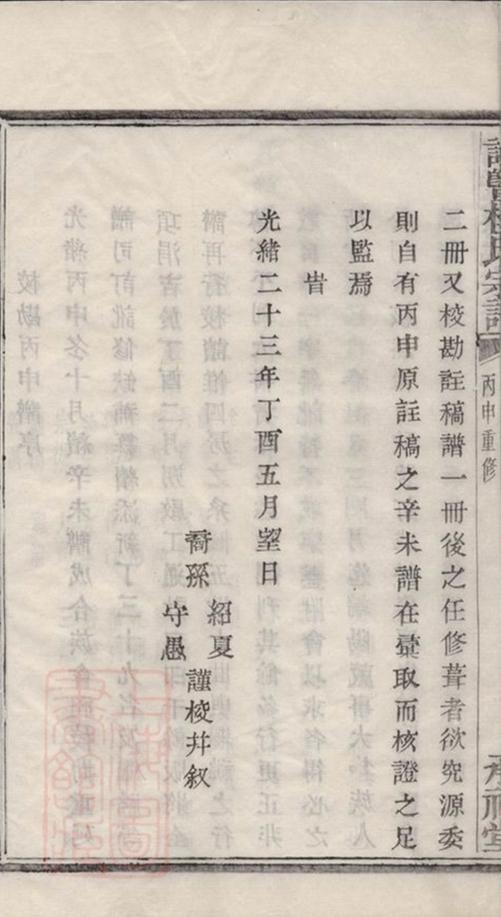 宗譜
丙申重修
二冊又校勘註稿譜一冊後之任修葺者欲究源委
則自有丙申原註稿之辛未譜在彙取而核證之足
以監焉
旹
光緒二十三年丁酉五月望日
裔孫
紹夏
守愚
謹校并敘